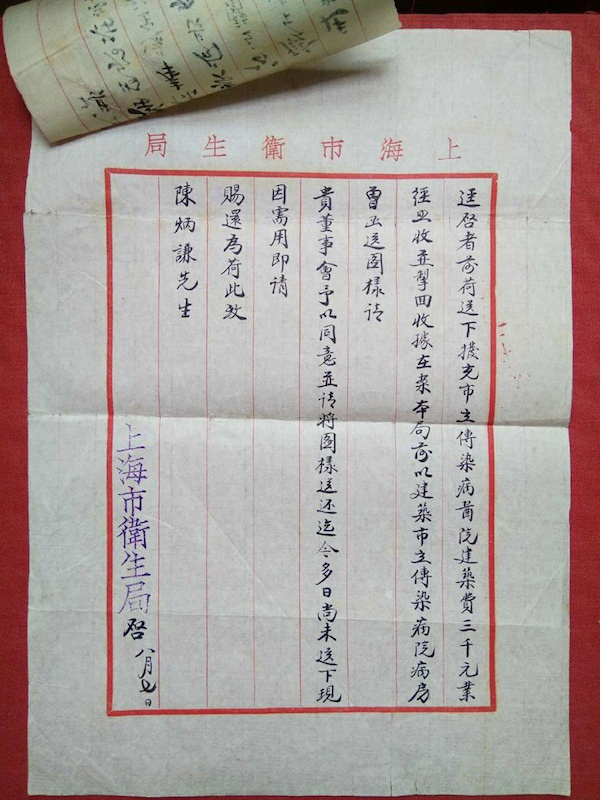 上海市衛生局
逕啓者前荷送下撥充市立傳染病醫院建築費三千元業
經照收並掣回收據在案本局前以建築市立傳染病院病房
曾函送圖樣請
貴董事會予以同意並請將圖樣送还迄今多日尚未送下現
因需用即請
賜還為荷此致
陳炳謙先生
上海市衛生局啓 八月七日